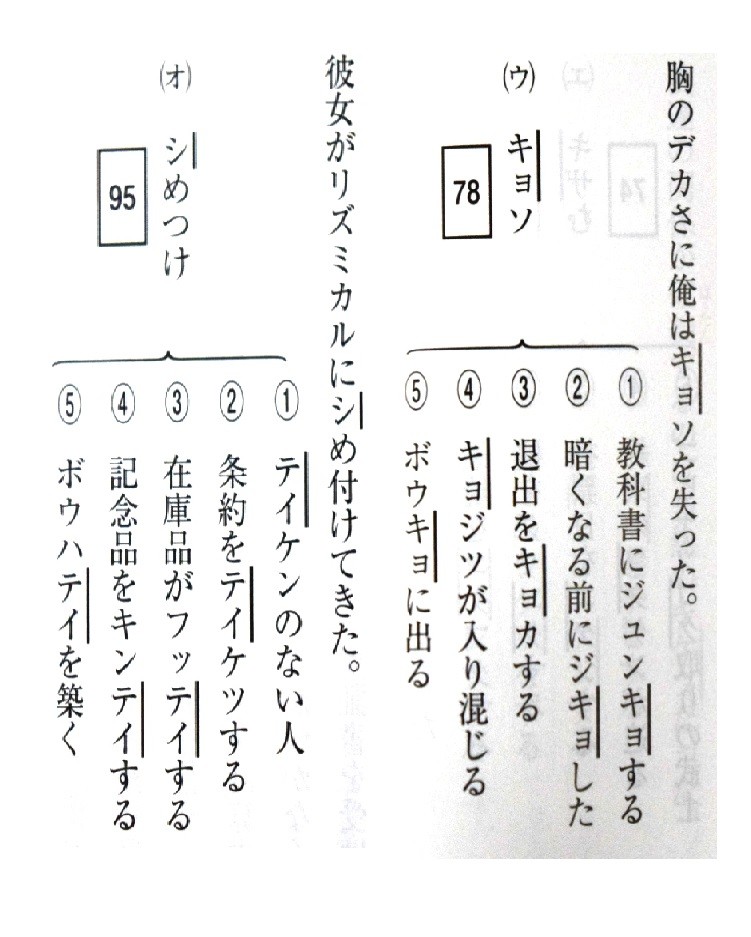 胸のデカさに俺はキョソを失った。
(ウ) キョソ
78
① 教科書にジュンキョする
② 暗くなる前にジキョした
③ 退出をキョカする
④ キョジツが入り混じる
⑤ ボウキョに出る
彼女がリズミカルにシめ付けてきた。
(オ) シめつけ
95
① テイケンのない人
② 条約をテイケツする
③ 在庫品がフッテイする
④ 記念品をキンテイする
⑤ ボウハテイを築く
(エ) キザむ
74